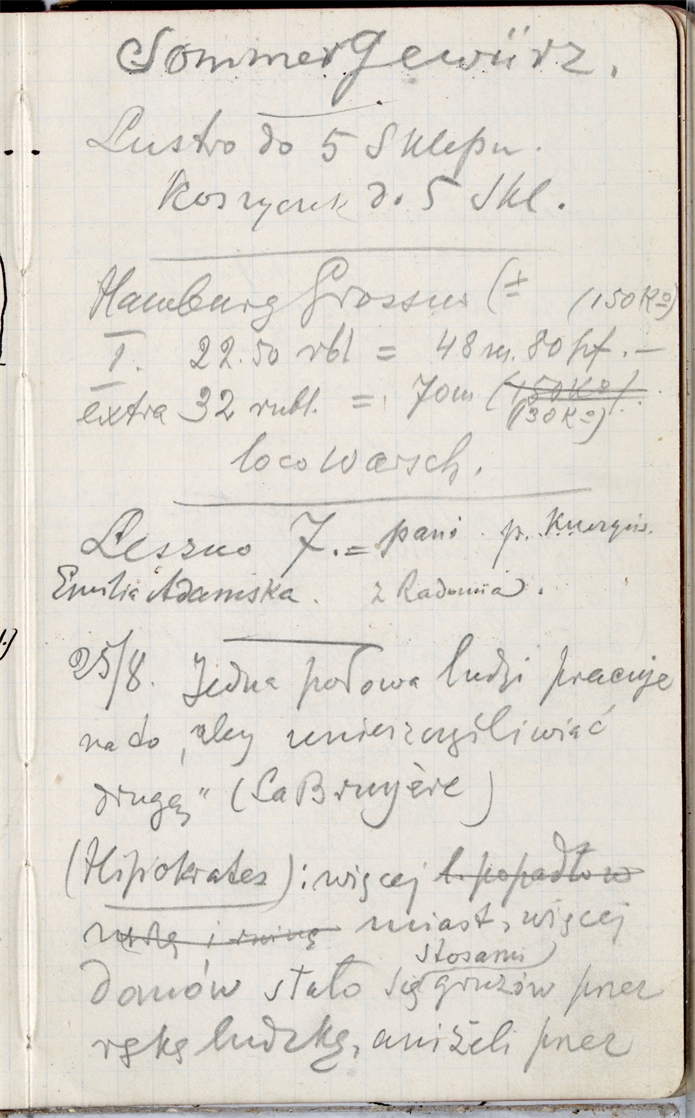 SommerGewürz.
Lustro do 5 Sklepu.
Koszyczek do 5 Skl.
Hamburg Grossm (± (150 Ko)
I. 22.50 rbl = 48 m. 80 pf. —
extra 32 rubl. = 70m (150 Ko)
(130 Ko)
loco Warsch.
Leszno 7. = pani p.
Emilia Adamska. z Radomia.
25/8. Jedna połowa ludzi pracuje
na to „aby unieszczęśliwiać
drugą” (La Bruyère)
(Hipokrates): więcej l. popadło w
ruinę miast, więcej
domów stało się stosami gruzów przez
rękę ludzką, aniżeli przez